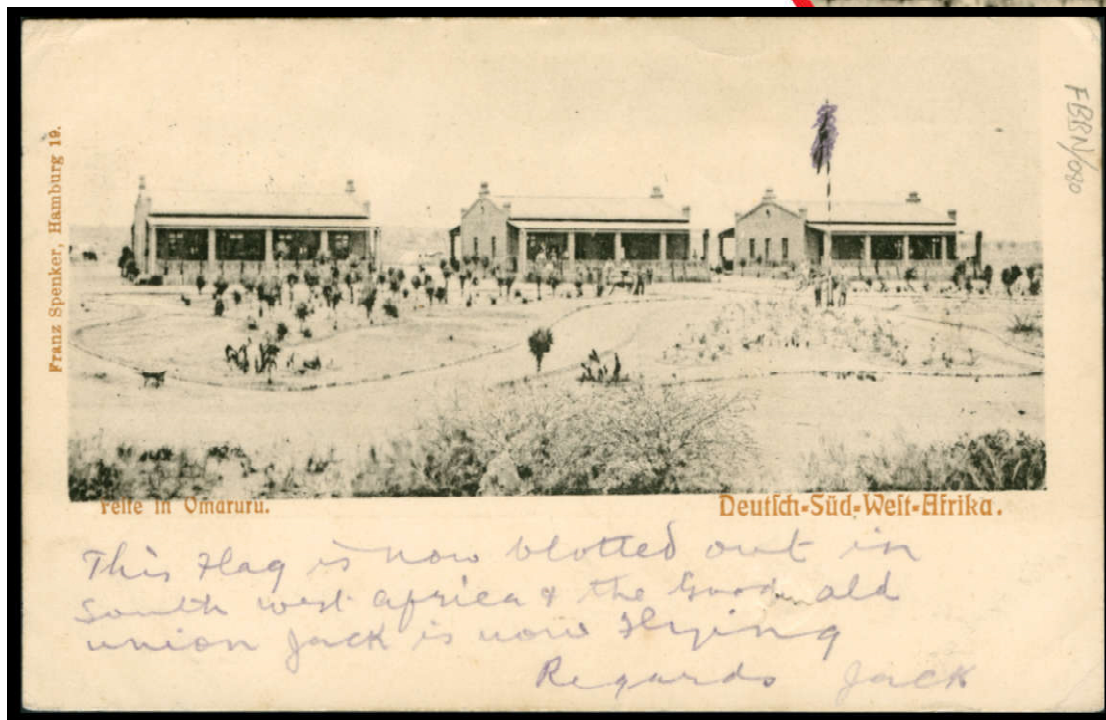 Franz Spenker, Hamburg 19.
FBBN/080
Feste in Omaruru.
Deutsch-Süd-West-Afrika.
This Flag is now blotted out in
South west africa & the Good old
union Jack is now Flying
Regards Jack